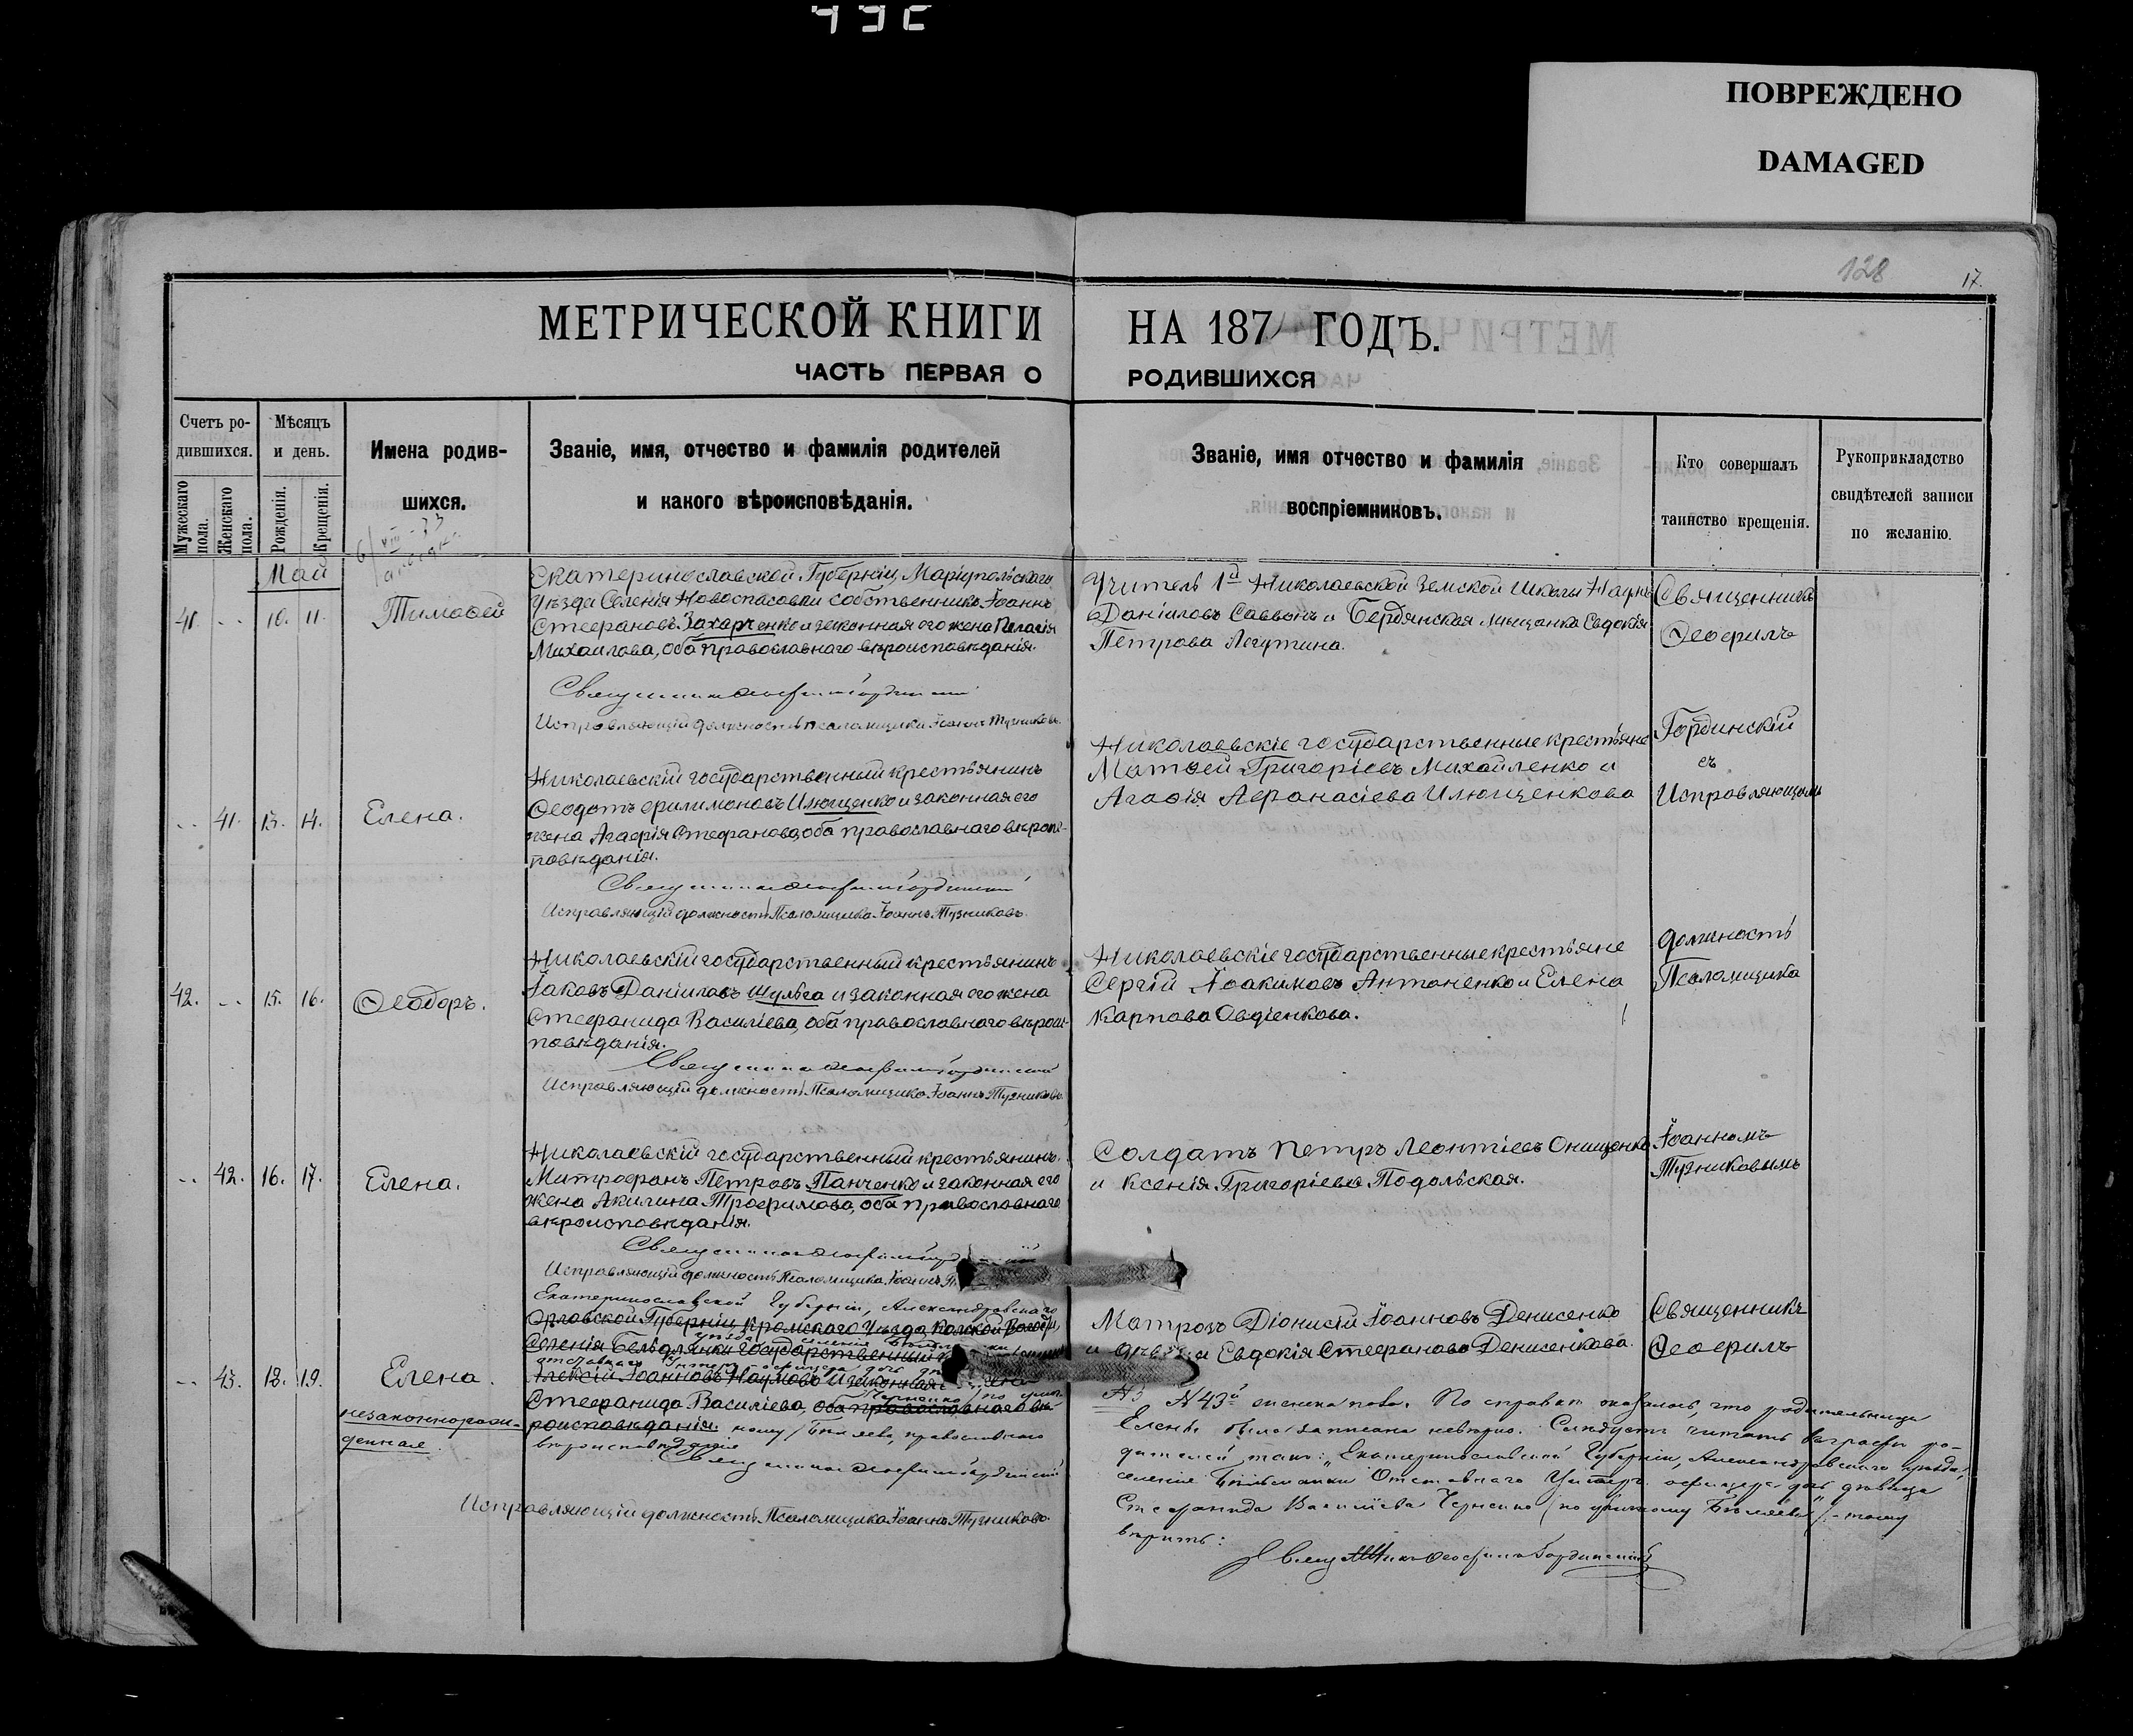 ПОВРЕЖДЕНО
DAMAGED
128
17.
МЕТРИЧЕСКОЙ КНИГИ НА 187 ГОДЪ.
ЧАСТЬ ПЕРВАЯ О РОДИВШИХСЯ
Счетъ ро-
дившихся.
Мужескаго пола.
Женскаго пола.
Мѣсяцъ
и день.
Рожденія.
Крещенія.
Имена родив-
шихся.
Званіе, имя, отчество и фамилія родителей
и какого вѣроисповѣданія.
Званіе, имя отчество и фамилія
воспріемниковъ.
Кто совершалъ
таинство крещенія.
Рукоприкладство
свидѣтелей записи
по желанію.
Май
41. 10. 11. Тимоѳей
Екатеринославской Губерніи, Маріупольскаго
Уѣзда Селенія Новоспасовки собственникъ Іоаннъ
Стефановъ Захарченко и законная его жена Пелагія
Михаилова, оба православнаго вѣроисповѣданія.
Исправляющій должность псаломщика Іоаннъ Тузниковъ.
Учитель 1й Николаевской Земской Школы Наумъ
Даніиловъ Саввонъ и Бердянская мѣщанка Евдокія
Петрова Легутина.
Священникъ
Ѳеофилъ
41. 13. 14. Елена.
Николаевскій государственный крестьянинъ
Ѳеодотъ Филимоновъ Илющенко и законная его
жена Агафія Стефанова, оба православнаго вѣроис-
повѣданія.
Исправляющій должность Псаломщика Іоаннъ Тузниковъ.
Николаевскіе государственные крестьяне
Матѳей Григоріевъ Михайленко и
Агафія Афанасіева Илющенкова
Гординскій
съ
Исправляющимъ
42. 15. 16. Ѳеодоръ.
Николаевскій государственный крестьянинъ
Іаковъ Даніиловъ Шульга и законная его жена
Стефанида Василіева, оба православнаго вѣроис-
повѣданія.
Исправляющій должность Псаломщика Іоаннъ Тузниковъ.
Николаевскіе государственные крестьяне
Сергій Іоакимовъ Антоненко и Елена
Карпова Овдіенкова.
должность
Псаломщика
42. 16. 17. Елена.
Николаевскій государственный крестьянинъ
Митрофанъ Петровъ Панченко и законная его
жена Акилина Трофимова, оба православнаго
вѣроисповѣданія.
Исправляющій должность Псаломщика Іоаннъ
Солдатъ Петръ Леонтіевъ Онищенко
и Ксенія Григоріева Подольская.
Іоанномъ
Тузниковымъ
43. 18. 19. Елена.
незаконнорож-
денная.
Екатеринославской Губерніи, Александровскаго
Орловской Губерніи, Кромскаго Уѣзда,
Селенія государственный
Алексій Іоанновъ Наумовъ и законная
Стефанида Василіева, оба православнаго вѣ-
роисповѣданія.
вѣроисповѣданія
Исправляющій должность Псаломщика Іоаннъ Тузниковъ.
Матрозъ Діонисій Іоанновъ Денисенко
и Евдокія Стефанова Денисенкова.
Священникъ
Ѳеофилъ
N 43й женска пола. По справкѣ оказалось, что родительница
Елены была записана невѣрно. Слѣдуетъ читать въ графѣ ро-
дителей такъ: „Екатеринославской Губерніи, Александровскаго уѣзда,
селенія Отставнаго Унтеръ офицера дочь дѣвица
Стефанида Василіева Черненко (по уличному Бѣляева)" - тому
вѣрить: